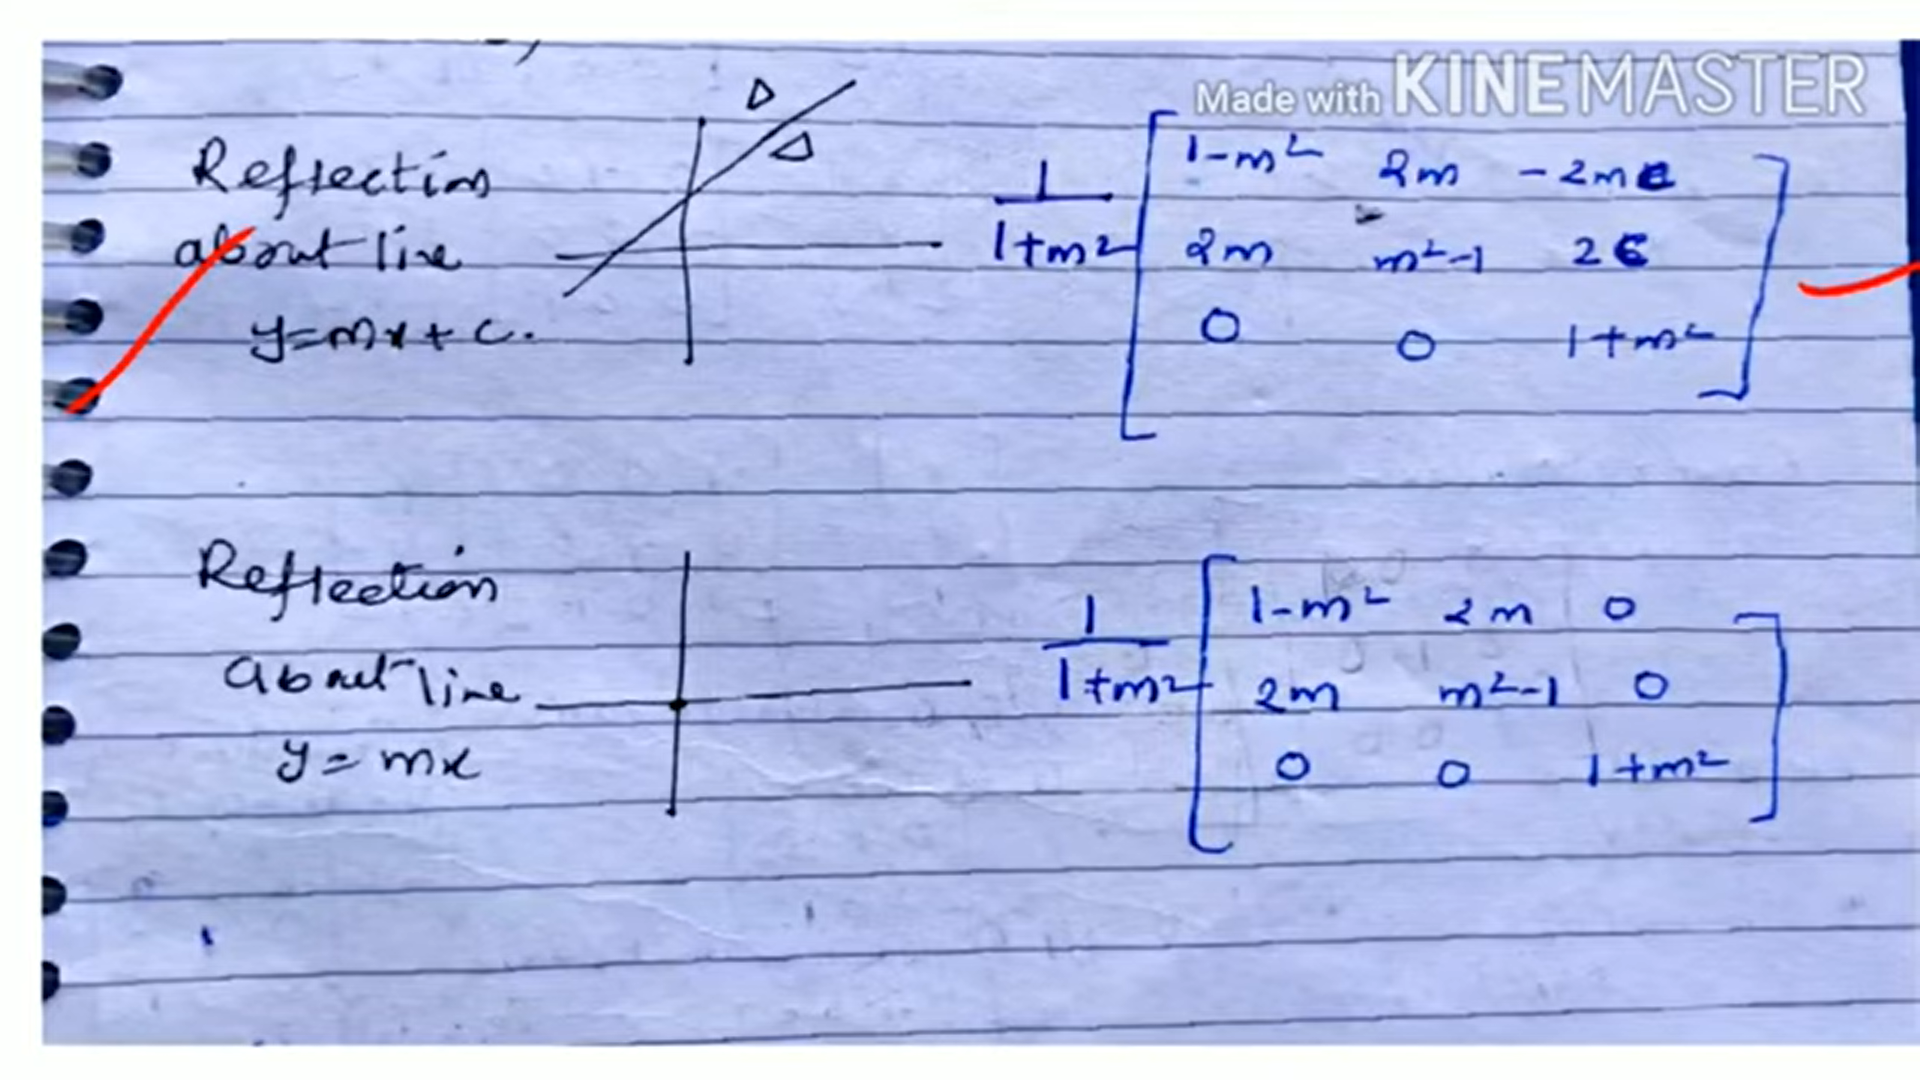 Made with KINEMASTER
Reflection
about line
y=mx+c.
1
1+m²
1-m² 2m -2mc
2m m²-1 2c
0 0 1+m²
Reflection
about line
y=mx
1
1+m²
1-m² 2m 0
2m m²-1 0
0 0 1+m²